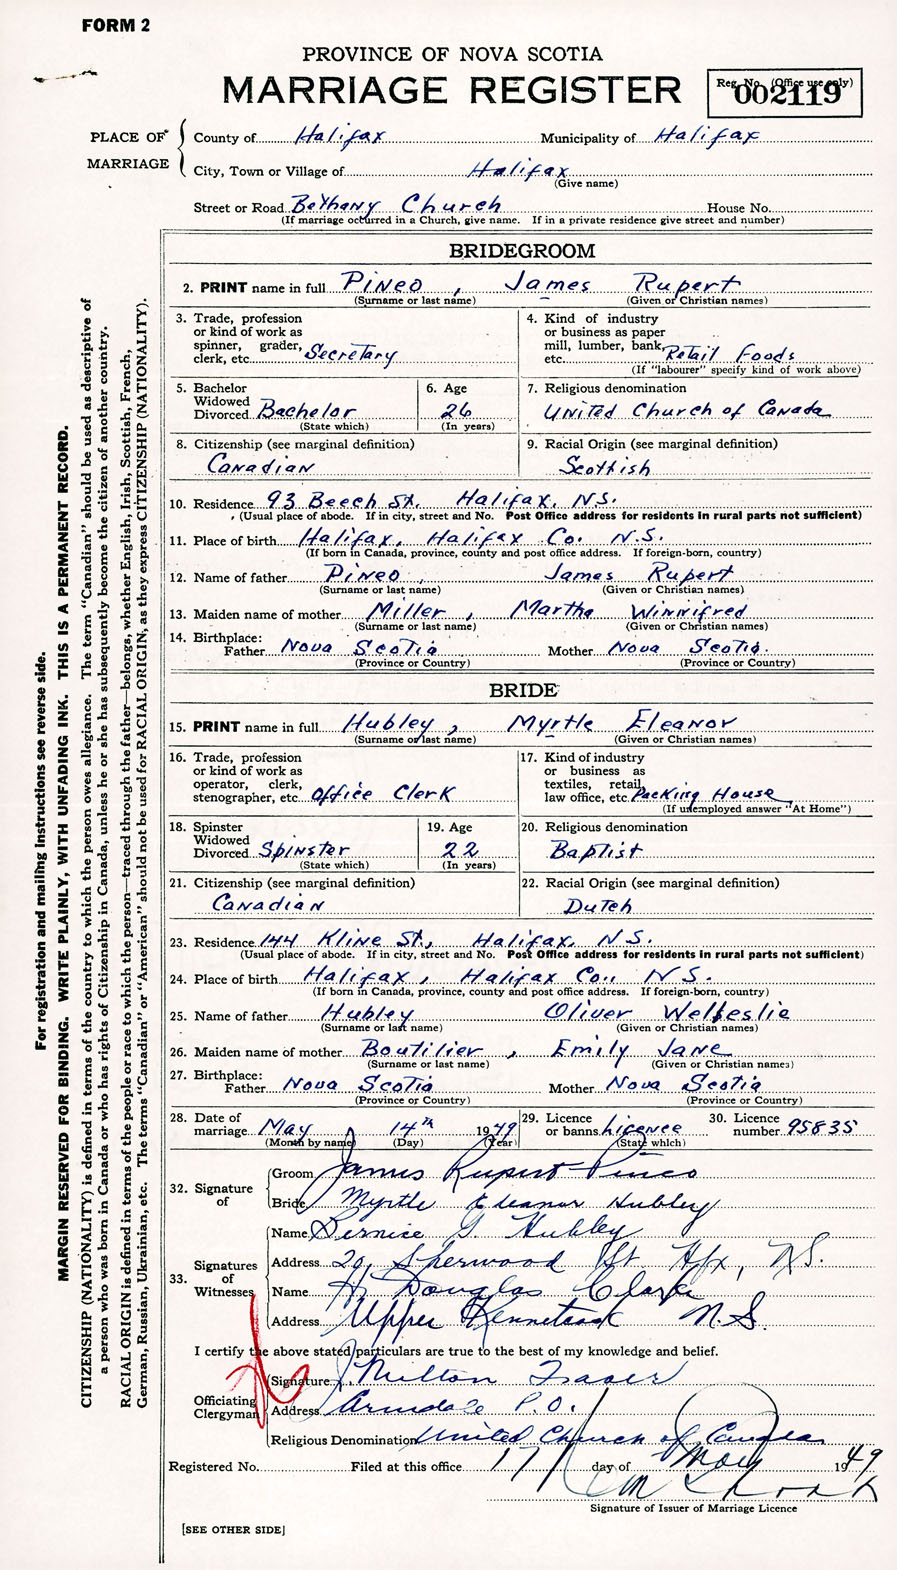 FORM 2
PROVINCE OF NOVA SCOTIA
MARRIAGE REGISTER
Reg. No. (Office use only)
002119
PLACE OF MARRIAGE
County of Halifax Municipality of Halifax
City, Town or Village of Halifax
(Give name)
Street or Road Bethany Church House No.
(If marriage occurred in a Church, give name. If in a private residence give street and number)
BRIDEGROOM
2. PRINT name in full Pineo, James Rupert
(Surname or last name) (Given or Christian names)
3. Trade, profession or kind of work as spinner, grader, clerk, etc. Secretary
4. Kind of industry or business as paper mill, lumber, bank, etc. Retail Foods
(If "labourer" specify kind of work above)
5. Bachelor Widowed Divorced Bachelor
(State which)
6. Age 26
(In years)
7. Religious denomination
United Church of Canada
8. Citizenship (see marginal definition)
Canadian
9. Racial Origin (see marginal definition)
Scottish
10. Residence 93 Beech St. Halifax, N.S.
(Usual place of abode. If in city, street and No. Post Office address for residents in rural parts not sufficient)
11. Place of birth Halifax, Halifax Co. N.S.
(If born in Canada, province, county and post office address. If foreign-born, country)
12. Name of father Pineo, James Rupert
(Surname or last name) (Given or Christian names)
13. Maiden name of mother Miller, Martha Winnifred
(Surname or last name) (Given or Christian names)
14. Birthplace:
Father Nova Scotia Mother Nova Scotia.
(Province or Country) (Province or Country)
BRIDE
15. PRINT name in full Hubley, Myrtle Eleanor
(Surname or last name) (Given or Christian names)
16. Trade, profession or kind of work as operator, clerk, stenographer, etc. Office Clerk
17. Kind of industry or business as textiles, retail, law office, etc. Packing House
(If unemployed answer "At Home")
18. Spinster Widowed Divorced Spinster
(State which)
19. Age 22
(In years)
20. Religious denomination
Baptist
21. Citizenship (see marginal definition)
Canadian
22. Racial Origin (see marginal definition)
Dutch
23. Residence 144 Kline St., Halifax, N.S.
(Usual place of abode. If in city, street and No. Post Office address for residents in rural parts not sufficient)
24. Place of birth Halifax, Halifax Co., N.S.
(If born in Canada, province, county and post office address. If foreign-born, country)
25. Name of father Hubley Oliver Welleslie
(Surname or last name) (Given or Christian names)
26. Maiden name of mother Boutilier, Emily Jane
(Surname or last name) (Given or Christian names)
27. Birthplace:
Father Nova Scotia Mother Nova Scotia
(Province or Country) (Province or Country)
28. Date of marriage May 14th 1949
(Month by name) (Day) (Year)
29. Licence or banns Licence
(State which)
30. Licence number 95835
32. Signature of
Groom James Rupert Pineo
Bride Myrtle Eleanor Hubley
33. Signatures of Witnesses
Name Bernice G. Hubley
Address 20, Sherwood Hfx, N.S.
Name H. Douglas Clarke
Address Upper Kennetcook N.S.
I certify the above stated particulars are true to the best of my knowledge and belief.
Officiating Clergyman
Signature J. Milton Fraser
Address Armdale P.O.
Religious Denomination United Church of Canada
Registered No. Filed at this office 17 day of May 1949
Signature of Issuer of Marriage Licence
[SEE OTHER SIDE]
For registration and mailing instructions see reverse side.
MARGIN RESERVED FOR BINDING. WRITE PLAINLY, WITH UNFADING INK. THIS IS A PERMANENT RECORD.
CITIZENSHIP (NATIONALITY) is defined in terms of the country to which the person owes allegiance. The term "Canadian" should be used as descriptive of
a person who was born in Canada or who has rights of Citizenship in Canada, unless he or she has subsequently become the citizen of another country.
RACIAL ORIGIN is defined in terms of the people or race to which the person—traced through the father—belongs, whether English, Irish, Scottish, French,
German, Russian, Ukrainian, etc. The terms "Canadian" or "American" should not be used for RACIAL ORIGIN, as they express CITIZENSHIP (NATIONALITY).